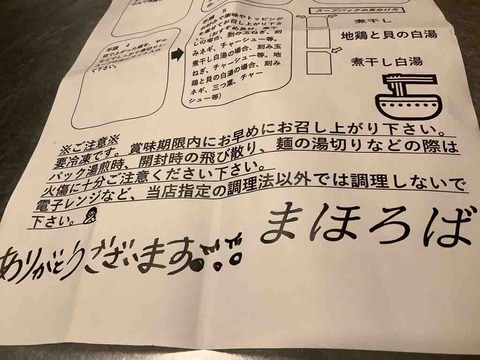 スープパックの見分け方
煮干し
地鶏と貝の白湯
煮干し白湯
手順
下さい。
手順 8
で薬味やトッピング
の場合、刻み玉ねぎ、
みネギ、チャーシュー等。
煮干し白湯の場合、刻み玉
ねぎ、チャーシュー等。地
鶏と貝の白湯の場合、刻み
ネギ、三つ葉、チャー
シュー等）
※ご注意※
要冷凍です。賞味期限内にお早めにお召し上がり下さい。
パック湯煎時、開封時の飛び散り、麺の湯切りなどの際は
火傷に十分ご注意ください下さい。
電子レンジなど、当店指定の調理法以外では調理しないで
下さい。
まほろば
ありがとうございます